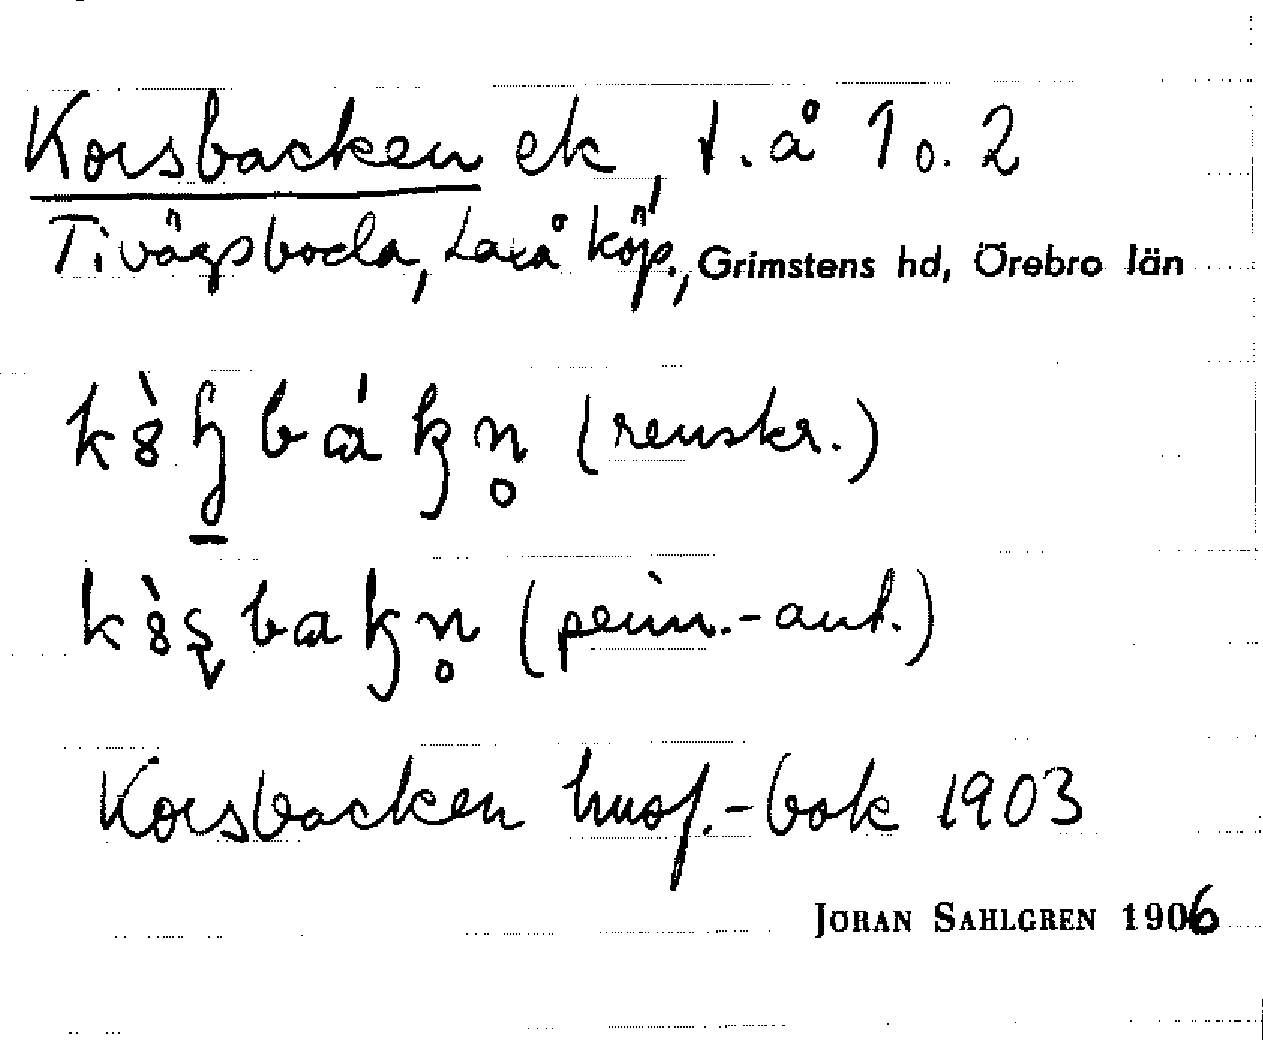 Korsbacken ek, t. å 1 o. 2
Tivägsboda, Laxå köp., Grimstens hd, Örebro län
(renskr.)
(penn.-ant.)
Korsbacken husf.-bok 1903
JOHAN SAHLGREN 1906